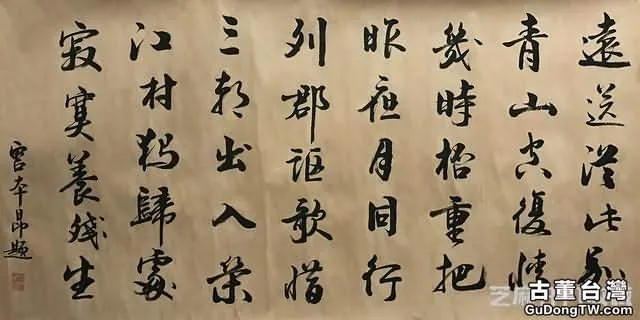 遠送從此別
青山空復情
幾時杯重把
昨夜月同行
列郡謳歌惜
三朝出入榮
江村獨歸處
寂寞養殘生
宮本昂題
古董台灣
GuDongTW.com